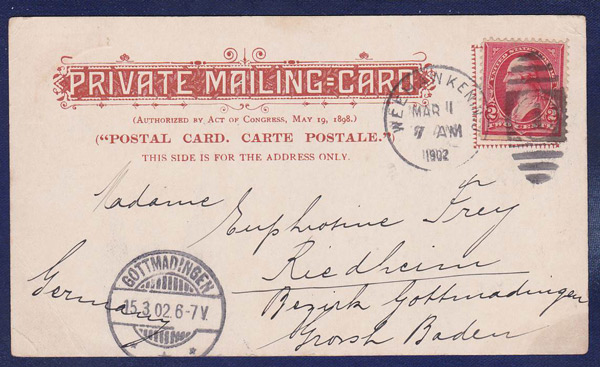 PRIVATE MAILING=CARD
(AUTHORIZED BY ACT OF CONGRESS, MAY 19, 1898.)
("POSTAL CARD. CARTE POSTALE."
THIS SIDE IS FOR THE ADDRESS ONLY.
MAR 11
7 AM
1902
2 2
Madame Euphrosine Frey
Riedheim
Bezirk Gottmadingen
Grossh Baden
Germany
GOTTMADINGEN
15.3.02.6-7V.